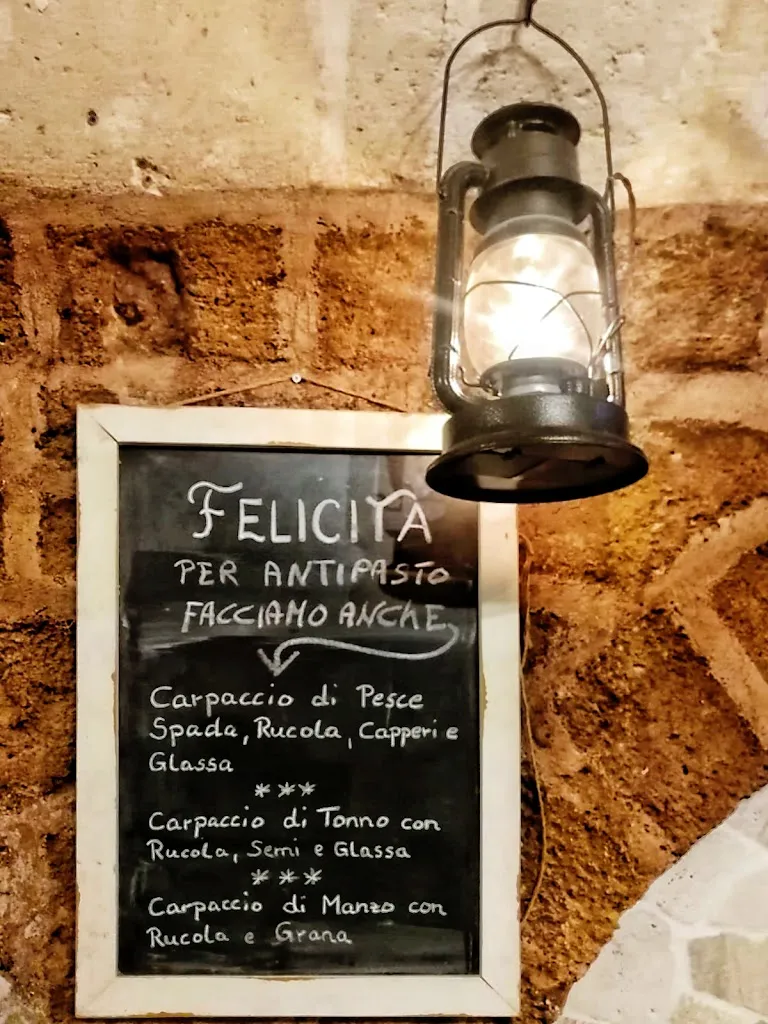 FELICITÀ
PER ANTIPASTO
FACCIAMO ANCHE
Carpaccio di Pesce
Spada, Rucola, Capperi e
Glassa
***
Carpaccio di Tonno con
Rucola, Semi e Glassa
***
Carpaccio di Manzo con
Rucola e Grana